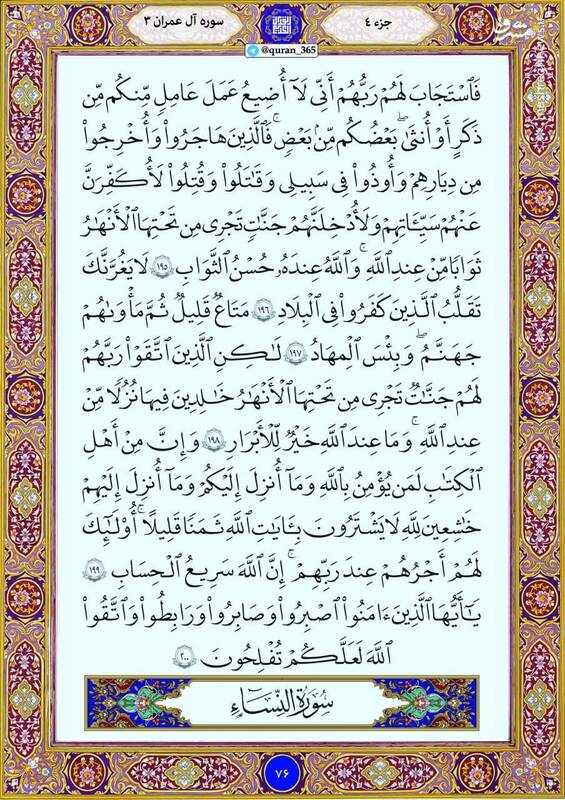 جزء ۴
سوره آل عمران ۳
@quran_365
مشرق
فَٱسۡتَجَابَ لَهُمۡ رَبُّهُمۡ أَنِّي لَآ أُضِيعُ عَمَلَ عَٰمِلٖ مِّنكُم مِّن
ذَكَرٍ أَوۡ أُنثَىٰۖ بَعۡضُكُم مِّنۢ بَعۡضٖۖ فَٱلَّذِينَ هَاجَرُواْ وَأُخۡرِجُواْ
مِن دِيَٰرِهِمۡ وَأُوذُواْ فِي سَبِيلِي وَقَٰتَلُواْ وَقُتِلُواْ لَأُكَفِّرَنَّ
عَنۡهُمۡ سَيِّـَٔاتِهِمۡ وَلَأُدۡخِلَنَّهُمۡ جَنَّٰتٖ تَجۡرِي مِن تَحۡتِهَا ٱلۡأَنۡهَٰرُ
ثَوَابٗا مِّنۡ عِندِ ٱللَّهِۚ وَٱللَّهُ عِندَهُۥ حُسۡنُ ٱلثَّوَابِ ۱۹۵ لَا يَغُرَّنَّكَ
تَقَلُّبُ ٱلَّذِينَ كَفَرُواْ فِي ٱلۡبِلَٰدِ ۱۹۶ مَتَٰعٞ قَلِيلٞ ثُمَّ مَأۡوَىٰهُمۡ
جَهَنَّمُۖ وَبِئۡسَ ٱلۡمِهَادُ ۱۹۷ لَٰكِنِ ٱلَّذِينَ ٱتَّقَوۡاْ رَبَّهُمۡ
لَهُمۡ جَنَّٰتٞ تَجۡرِي مِن تَحۡتِهَا ٱلۡأَنۡهَٰرُ خَٰلِدِينَ فِيهَا نُزُلٗا مِّنۡ
عِندِ ٱللَّهِۗ وَمَا عِندَ ٱللَّهِ خَيۡرٞ لِّلۡأَبۡرَارِ ۱۹۸ وَإِنَّ مِنۡ أَهۡلِ
ٱلۡكِتَٰبِ لَمَن يُؤۡمِنُ بِٱللَّهِ وَمَآ أُنزِلَ إِلَيۡكُمۡ وَمَآ أُنزِلَ إِلَيۡهِمۡ
خَٰشِعِينَ لِلَّهِ لَا يَشۡتَرُونَ بِـَٔايَٰتِ ٱللَّهِ ثَمَنٗا قَلِيلًاۚ أُوْلَٰٓئِكَ
لَهُمۡ أَجۡرُهُمۡ عِندَ رَبِّهِمۡۗ إِنَّ ٱللَّهَ سَرِيعُ ٱلۡحِسَابِ ۱۹۹
يَٰٓأَيُّهَا ٱلَّذِينَ ءَامَنُواْ ٱصۡبِرُواْ وَصَابِرُواْ وَرَابِطُواْ وَٱتَّقُواْ
ٱللَّهَ لَعَلَّكُمۡ تُفۡلِحُونَ ۲۰۰
سُورَةُ النِّسَاءِ
۷۶